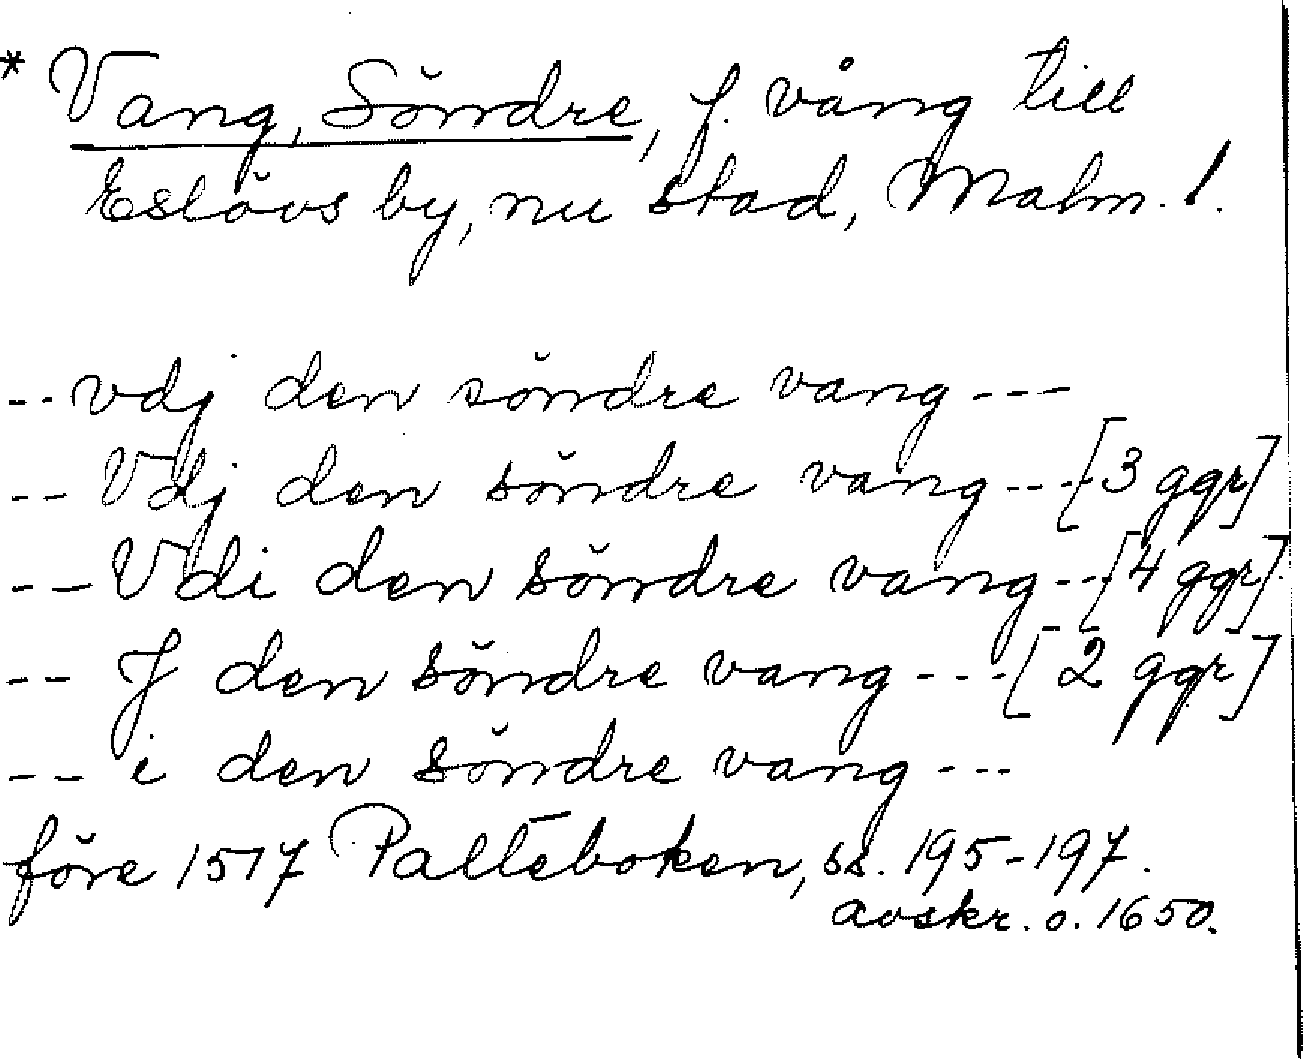 * Vang, Söndre, f. vång till
Eslövs by, nu stad, Malm. l.
-- vdj den söndre vang ---
-- Vdj den söndre vang --- [3 ggr]
-- Vdi den söndre vang --- [4 ggr]
-- J den söndre vang --- [2 ggr]
-- i den söndre vang ---
före 1517 Palteboken, ss. 195-197.
avskr. o. 1650.